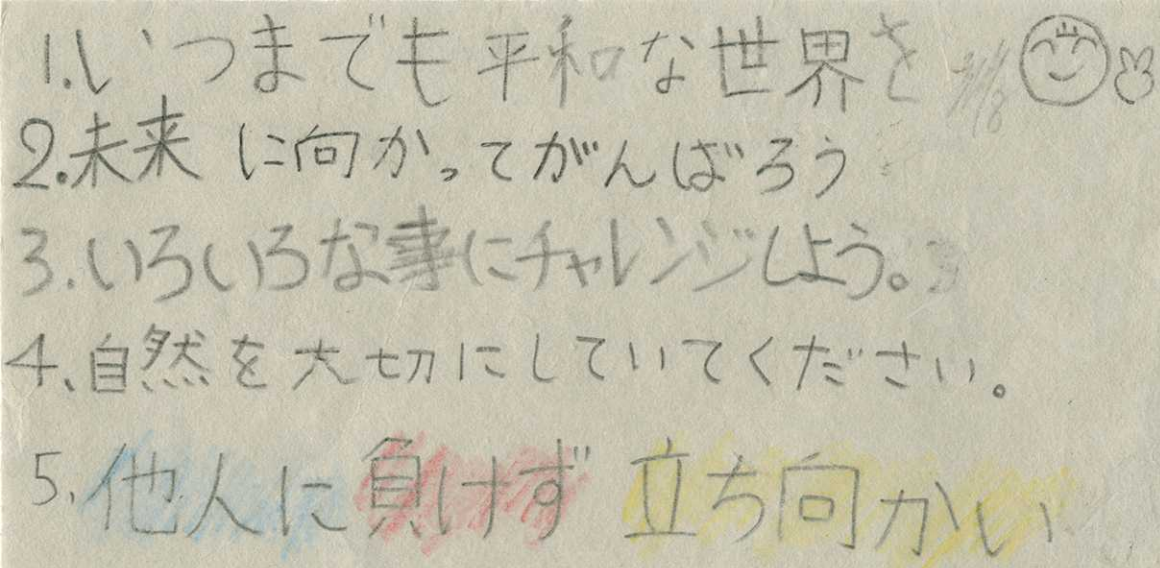 1.いつまでも平和な世界を
2.未来に向かってがんばろう
3.いろいろな事にチャレンジしよう。
4、自然を大切にしていてください。
5、他人に負けず立ち向かい